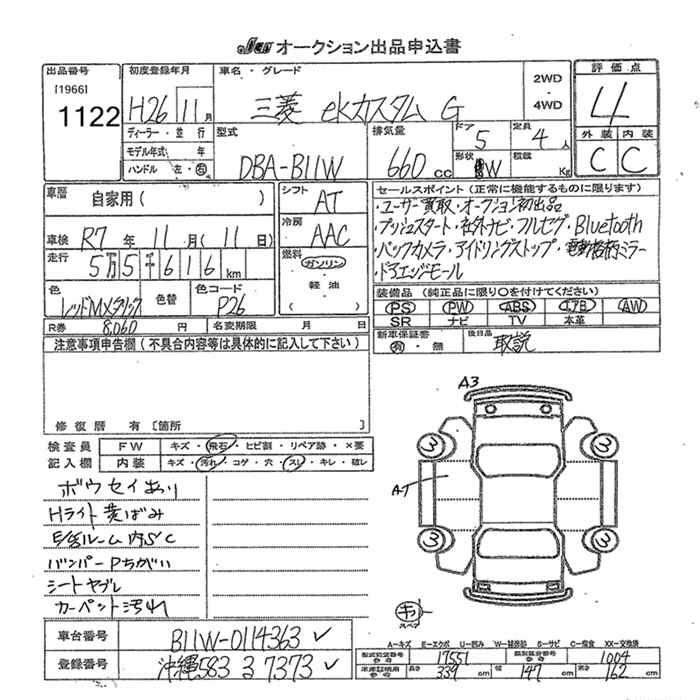 JU オークション出品申込書
出品番号
[1966]
1122
初度登録年月
H26 11月
ディーラー・並行
モデル年式 年
ハンドル 左・右
車名・グレード
三菱 ekカスタム G
2WD
4WD
評価点
4
外装 内装
C C
型式
DBA-B11W
排気量
660 cc
ドア
5
定員
4人
形状
W
積載
Kg
車歴
自家用( )
車検 R7年 11月( 11日)
走行 5万5千616km
色
レッドMメタリック
色替
色コード
P26
シフト
AT
冷房
AAC
燃料
ガソリン
軽油
( )
R券 8,060円
名変期限 月 日
セールスポイント(正常に機能するものに限ります)
・ユーザー買取・オークション初出品
・プッシュスタート・社外ナビ・フルセグ・Bluetooth
・バックカメラ・アイドリングストップ・電動格納ミラー
・ドアエッジモール
装備品(純正品に限り○を付けてください)
PS PW ABS エアB AW
SR ナビ TV 本革
新車保証書
有・無
後日品
取説
注意事項申告欄(不具合内容等は具体的に記入して下さい)
修復歴 有[箇所 ]
検査員
記入欄
FW キズ・飛石・ヒビ割・リペア跡・×要
内装 キズ・汚れ・コゲ・穴・スレ・キレ・破レ
ボウセイあり
Hライト黄ばみ
E/G ルーム内S・C
バンパーPちがい
シートヤブレ
カーペット汚れ
A3
3
3
AT
3
3
キ
スペア
車台番号 B11W-0114363
登録番号 沖縄583 る 7373
A-キズ E-エクボ U-凹み W-補修跡 S-サビ C-腐食 XX-交換済
型式指定番号
参考
17551
類別区分番号
参考
1004
参考
長さ 339cm
幅 147cm
高さ 162cm